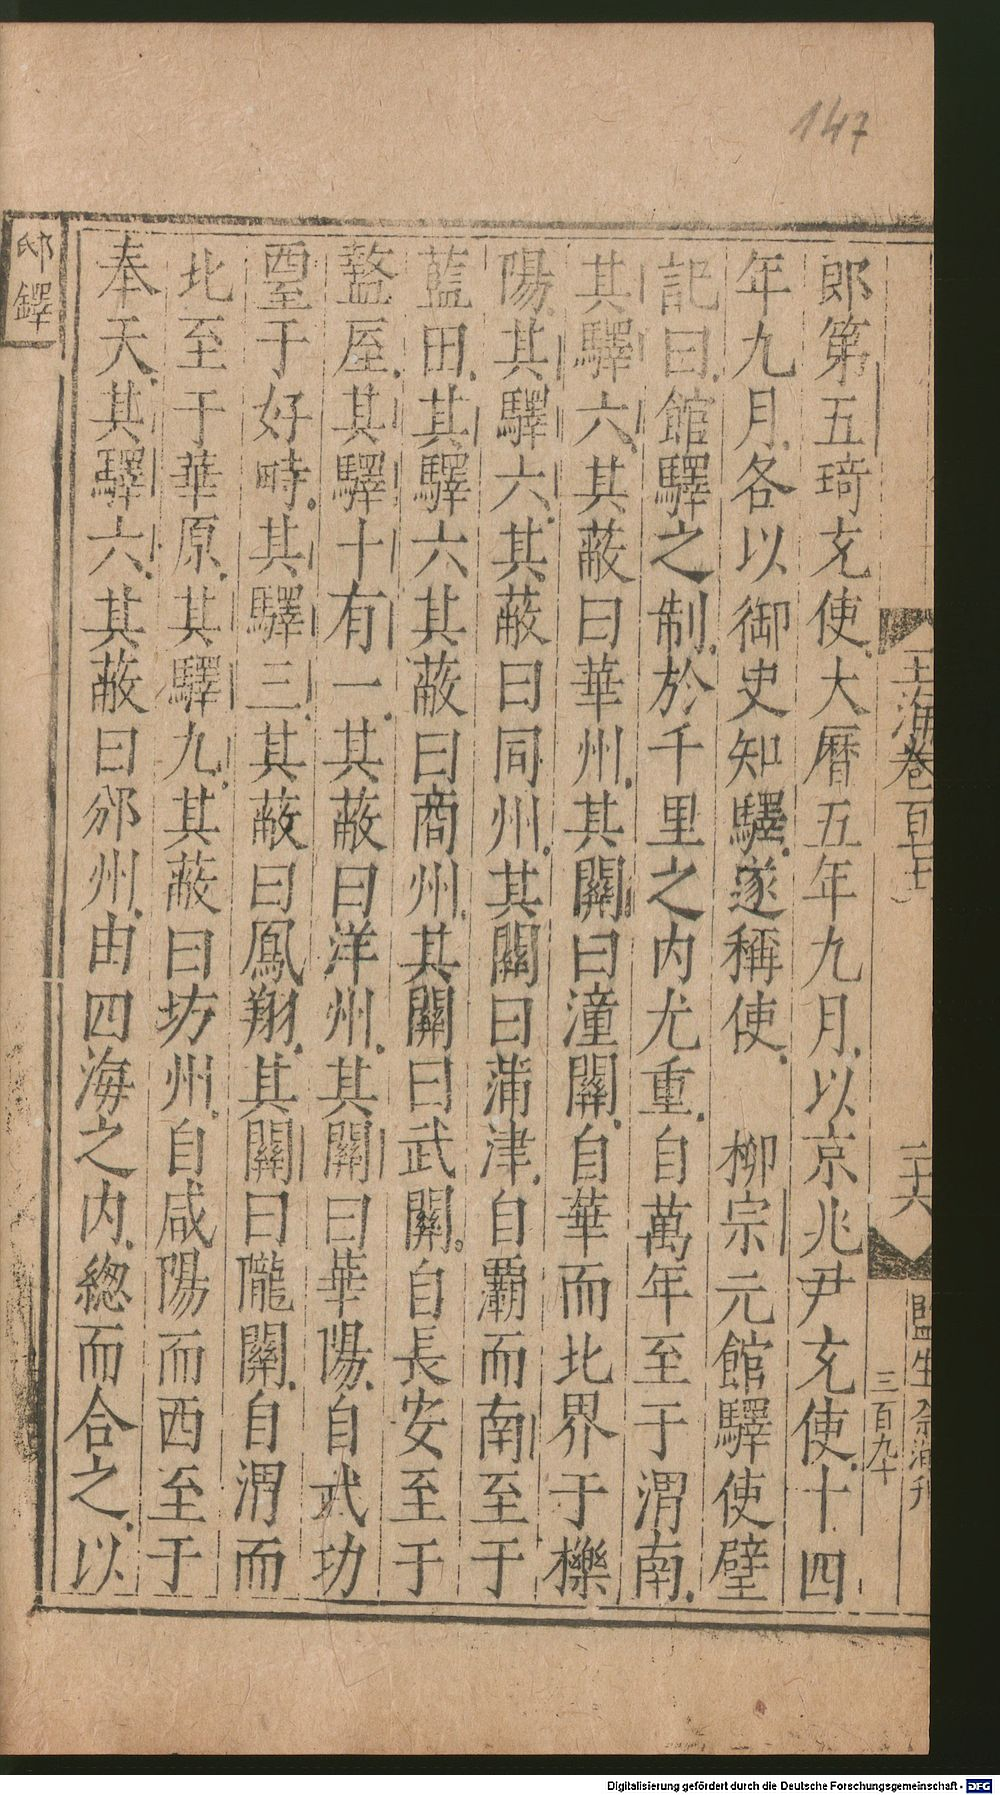 147
郎第五琦充使大曆五年九月以京兆尹充使十四
年九月各以御史知驛遂稱使 柳宗元館驛使壁
記曰館驛之制於千里之内尤重自萬年至于渭南
其驛六其蔽曰華州其關曰潼關自華而北界于櫟
陽其驛六其蔽曰同州其關曰蒲津自灞而南至于
藍田其驛六其蔽曰商州其關曰武關自長安至于
盩厔其驛十有一其蔽曰洋州其關曰華陽自武功
至于好畤其驛三其蔽曰鳳翔其關曰隴關自渭而
北至于華原其驛九其蔽曰坊州自咸陽而西至于
奉天其驛六其蔽曰邠州由四海之内緫而合之以
邸鐸
玉海卷百
三百九十
監生
Digitalisierung gefördert durch die Deutsche Forschungsgemeinschaft - DFG